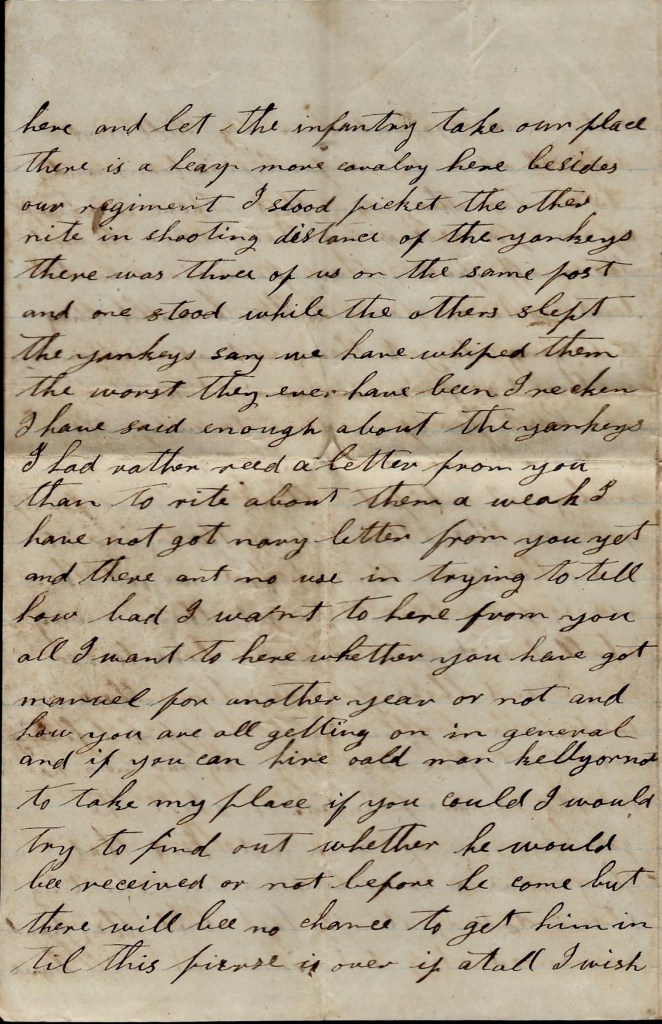 here and let the infantry take our place
there is a heap more cavalry here besides
our regiment I stood picket the other
nite in shooting distance of the yankeys
there was three of us on the same post
and one stood while the others slept
the yankeys say we have whiped them
the worst they ever have been I recken
I have said enough about the yankeys
I had rather reed a letter from you
than to rite about them a weak I
have not got nary letter from you yet
and there ant no use in trying to tell
how bad I want to here from you
all I want to here whether you have got
manuel for another year or not and
how you are all getting on in general
and if you can hire oald man kelly or not
to take my place if you could I would
try to find out whether he would
bee received or not before he come but
there will bee no chance to get him in
til this is over if atall I wish